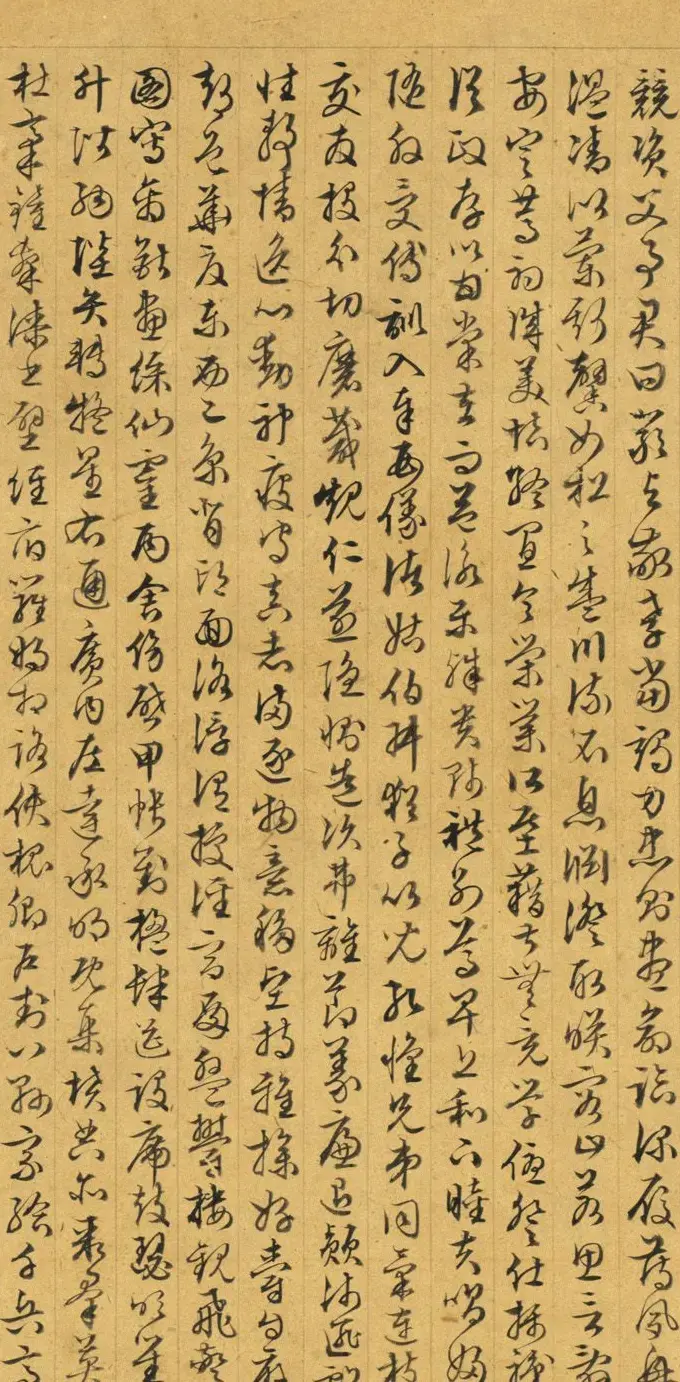 競資父事君曰嚴與敬孝當竭力忠則盡命臨深履薄夙興
溫凊似蘭斯馨如松之盛川流不息淵澄取映容止若思言辭
安定篤初誠美慎終宜令榮業所基藉甚無竟學優登仕攝職
從政存以甘棠去而益詠樂殊貴賤禮別尊卑上和下睦夫唱婦
隨外受傅訓入奉母儀諸姑伯叔猶子比兒孔懷兄弟同氣連枝
交友投分切磨箴規仁慈隱惻造次弗離節義廉退顛沛匪虧
性靜情逸心動神疲守真志滿逐物意移堅持雅操好爵自縻
都邑華夏東西二京背邙面洛浮渭據涇宮殿盤鬱樓觀飛驚
圖寫禽獸畫綵仙靈丙舍傍啟甲帳對楹肆筵設席鼓瑟吹笙
升階納陛弁轉疑星右通廣內左達承明既集墳典亦聚群英
杜稿鍾隸漆書壁經府羅將相路俠槐卿戶封八縣家給千兵高